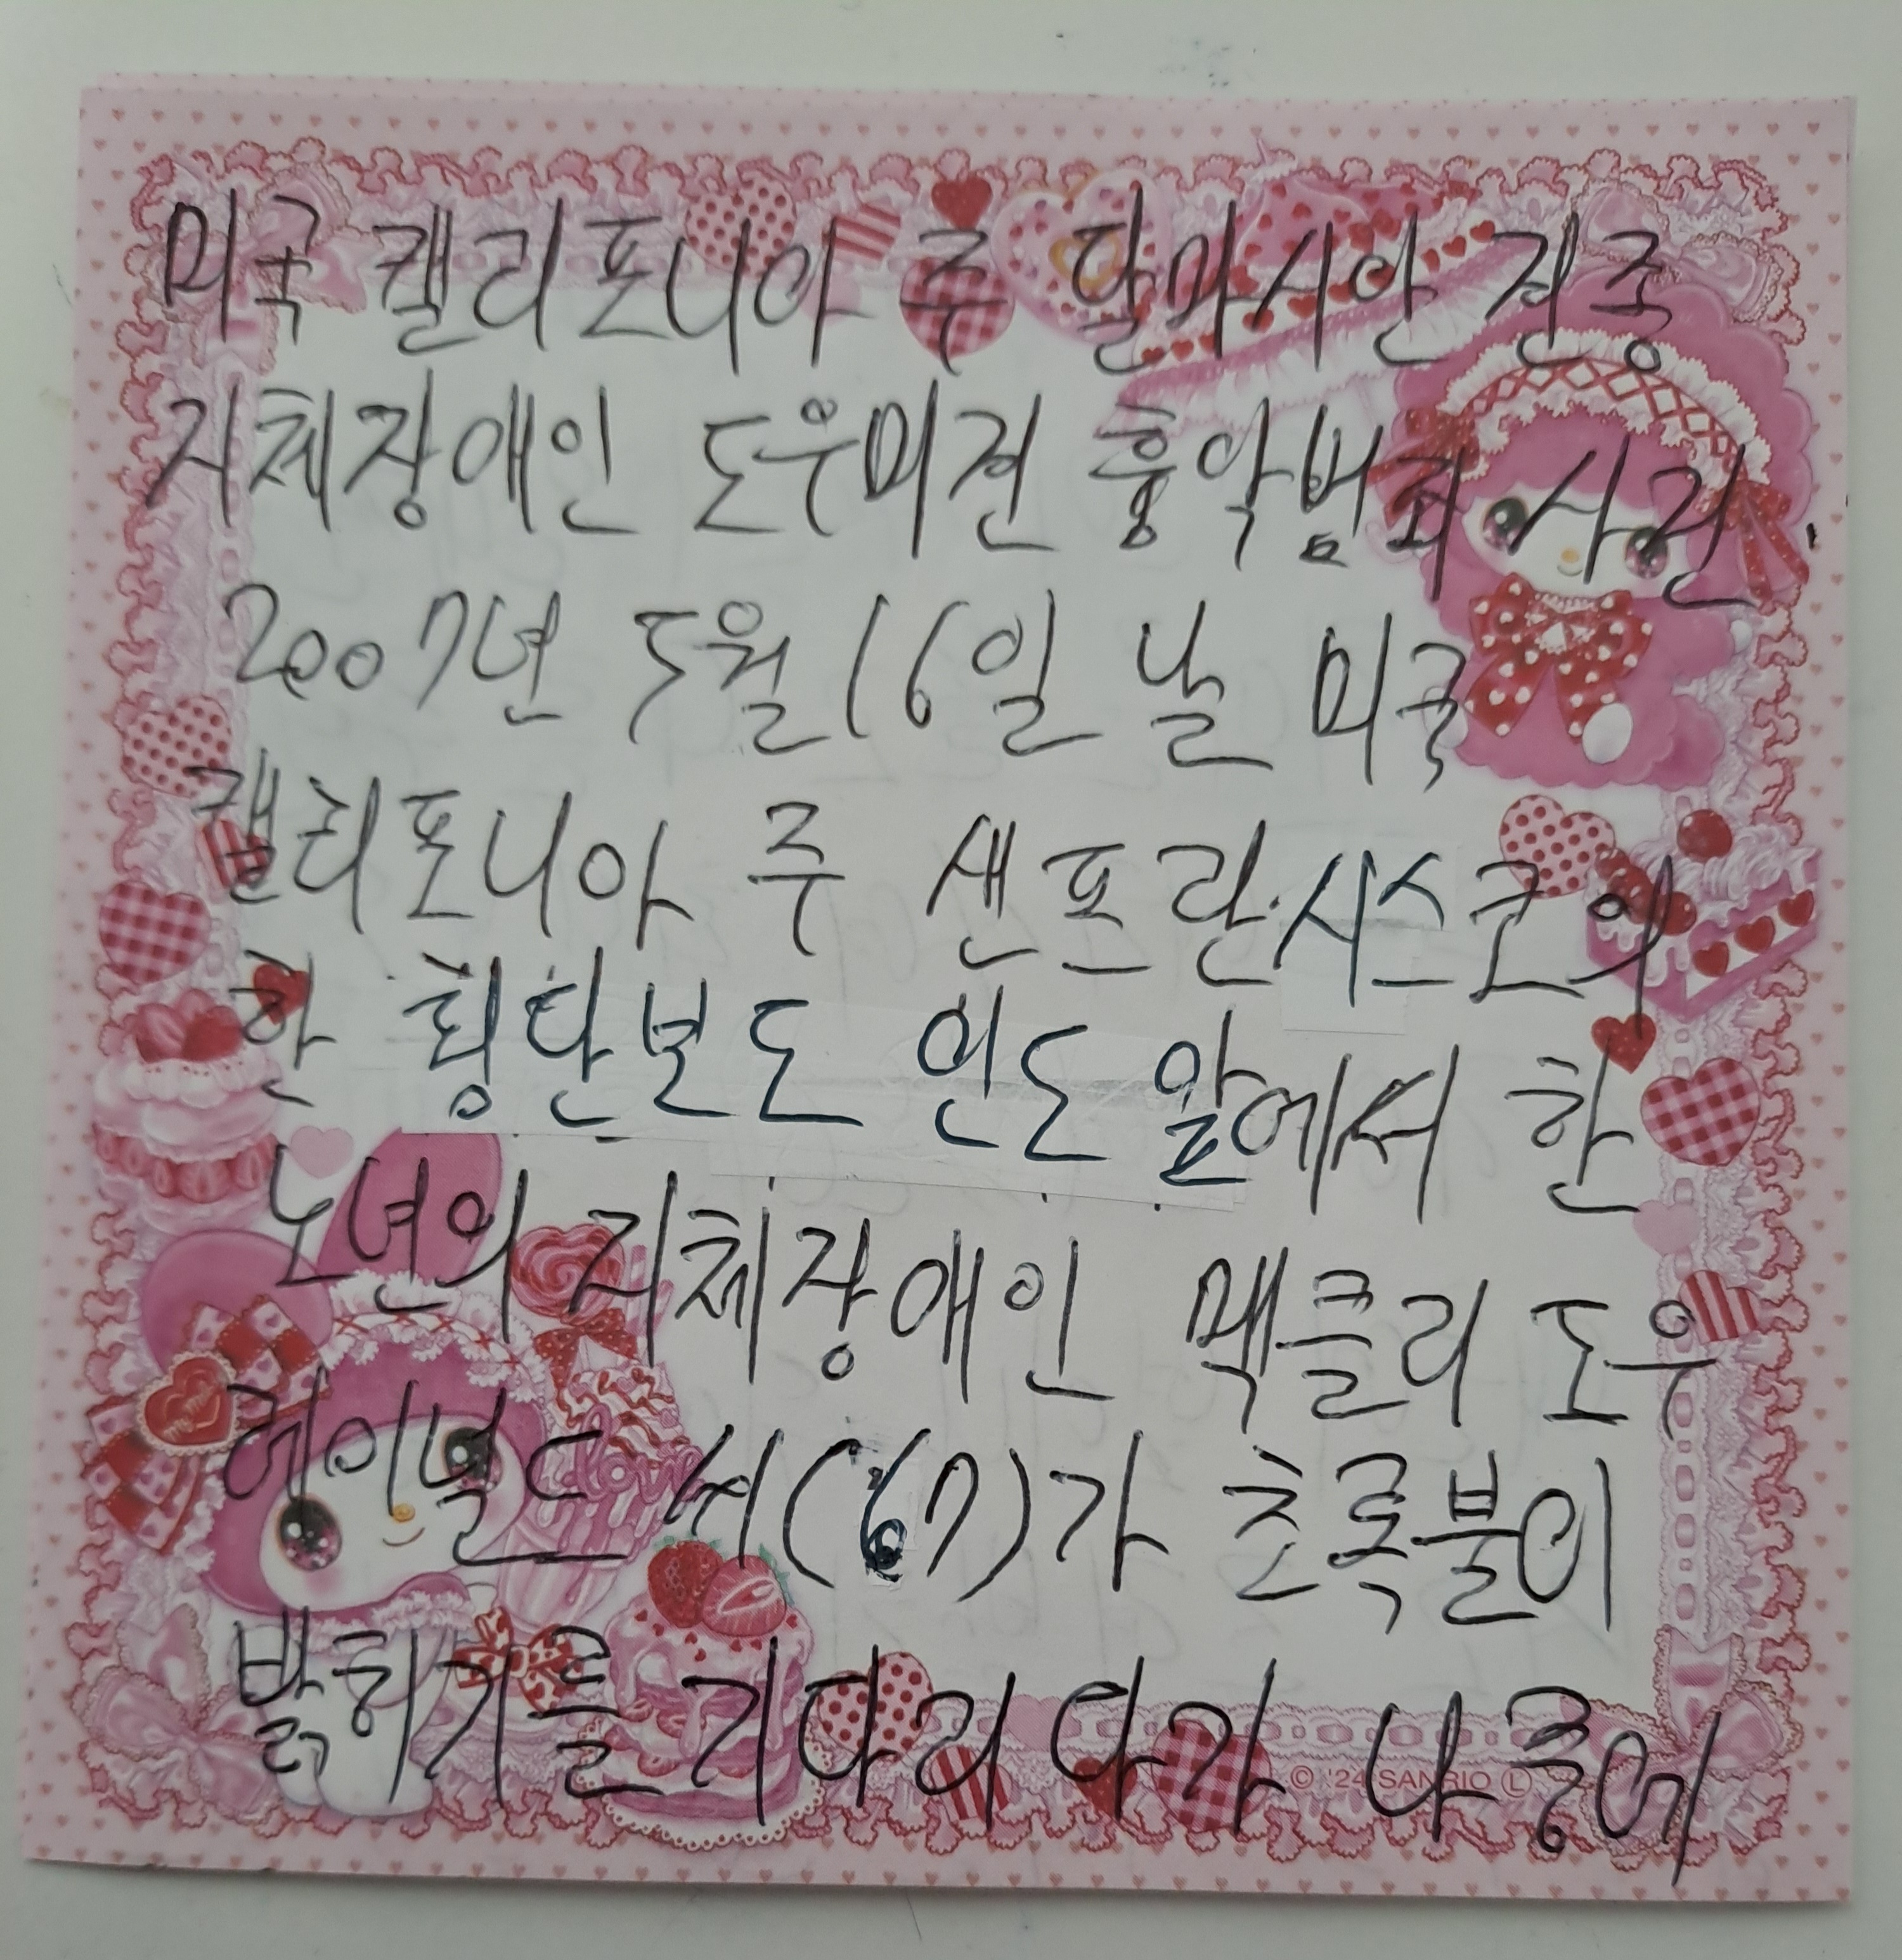 미국 캘리포니아 주 달마시안 견종
지체장애인 도우미견 흉악범죄 사건
2007년 5월 16일 날 미국
캘리포니아 주 샌프란시스코의
한 횡단보도 인도 앞에서 한
노년의 지체장애인 맥클리 도우
레이널드 씨(67)가 초록불이
밝혀기를 기다리다가 나중에
© '24 SANRIO Ⓛ